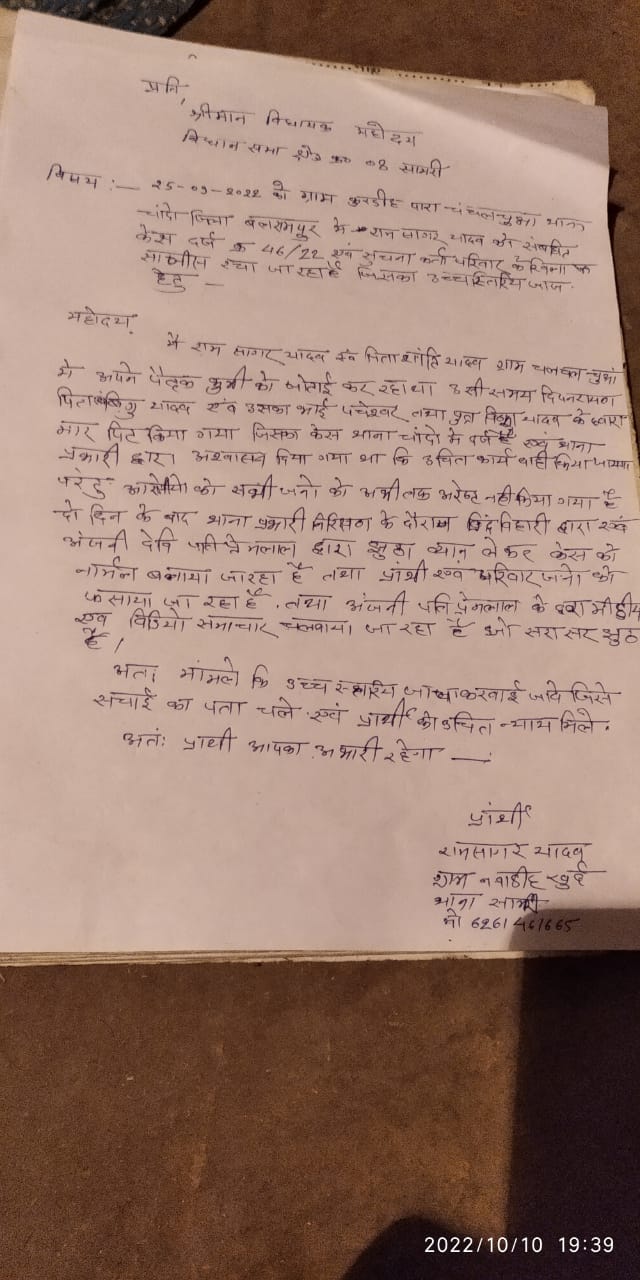 प्रति,
श्रीमान विधायक महोदय
विधान सभा क्षेत्र क्र० 08 सामरी
विषय :— 25-09-2022 को ग्राम कुरडीह पारा चंचलचुआ थाना
चांदो जिला बलरामपुर मे राम सागर यादव को संबंधित
केस दर्ज क्र 46/22 एवं सुचना कर्ता परिवार के खिलाफ
साजीस रचा जा रहा है जिसका उच्चस्तरिय जांच
हेतु —
महोदय,
मै राम सागर यादव पिता यादव ग्राम
मे अपने पैतृक भुमी को जोताई कर रहा था उसी समय दिपनारायण
पिता यादव एवं उसका भाई पंचेश्वर तथा पुत्र यादव के द्वारा
मार पिट किया गया जिसका केस थाना चांदो मे दर्ज है एवं थाना
प्रभारी द्वारा अश्वासन दिया गया था कि उचित कार्य वाही किया जायगा
परंतु आरोपीयो को सभी जनो को अभीतक अरेस्ट नही किया गया है
दो दिन के बाद थाना प्रभारी निरिक्षण के दौरान बिंदविहारी द्वारा एवं
अंजनी देवि पति प्रेमलाल द्वारा झुठा ब्यान लेकर केस को
नार्मल बनाया जा रहा है तथा प्रांर्थी एवं परिवार जनो को
फसाया जा रहा है. तथा अंजनी पति प्रेमलाल के द्वारा मीडीया
एवं विडियो समाचार चलवाया जा रहा है जो सरासर झुठ
है।
अतः मांमले कि उच्च स्तरिय जांच करवाई जावे जिसे
सचाई का पता चले एवं प्रार्थी को उचित न्याय मिले.
अतः प्रार्थी आपका अभारी रहेगा —
प्रांर्थी
रामसागर यादव
ग्राम नवाडीह खुर्द
थाना सामरी
मो 6261461665
2022/10/10 19:39